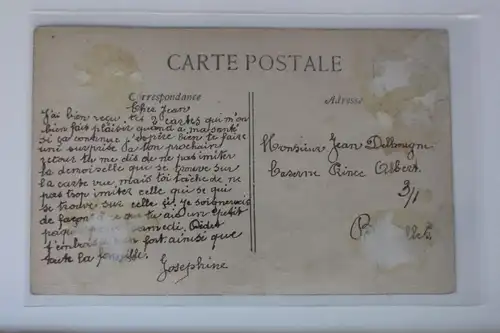 CARTE POSTALE
Correspondance
Adresse
Cher Jean
J'ai bien reçu tes 2 cartes qui m'on
bien fait plaisir quand a ma santé
si ça continue j'espère bien te faire
une surprise a ton prochain
retour tu me dis de ne pas imiter
la demoiselle que se trouve sur
la carte vue, mais toi tâche de ne
pas trop imiter celle qui se qui
se trouve sur celle ci. je soignerais
de façon que tu ais un petit
samedi.
J'embrasse bien fort ainsi que
toute la famille.
Josephine
Monsieur Jean
Caserne Prince Albert.
3/1